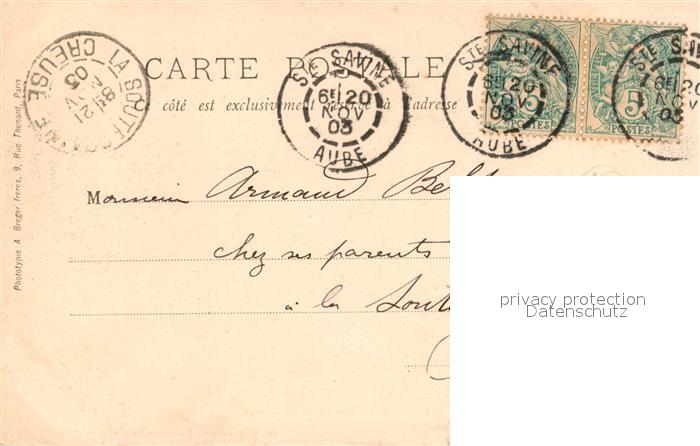 CARTE POSTALE
Ce côté est exclusivement réservé à l'adresse
STE SAVINE
6E 20
NOV
03
AUBE
STE SAVINE
6E 20
NOV
03
AUBE
STE SAVINE
6E 20
NOV
03
5
POSTES
5
POSTES
LA SOUTERRAINE
8E 21
NOV
03
CREUSE
Phototypie A Breger frères, 9, Rue Thenard, Paris
Monsieur Armand
chez ses parents
à la
privacy protection
Datenschutz